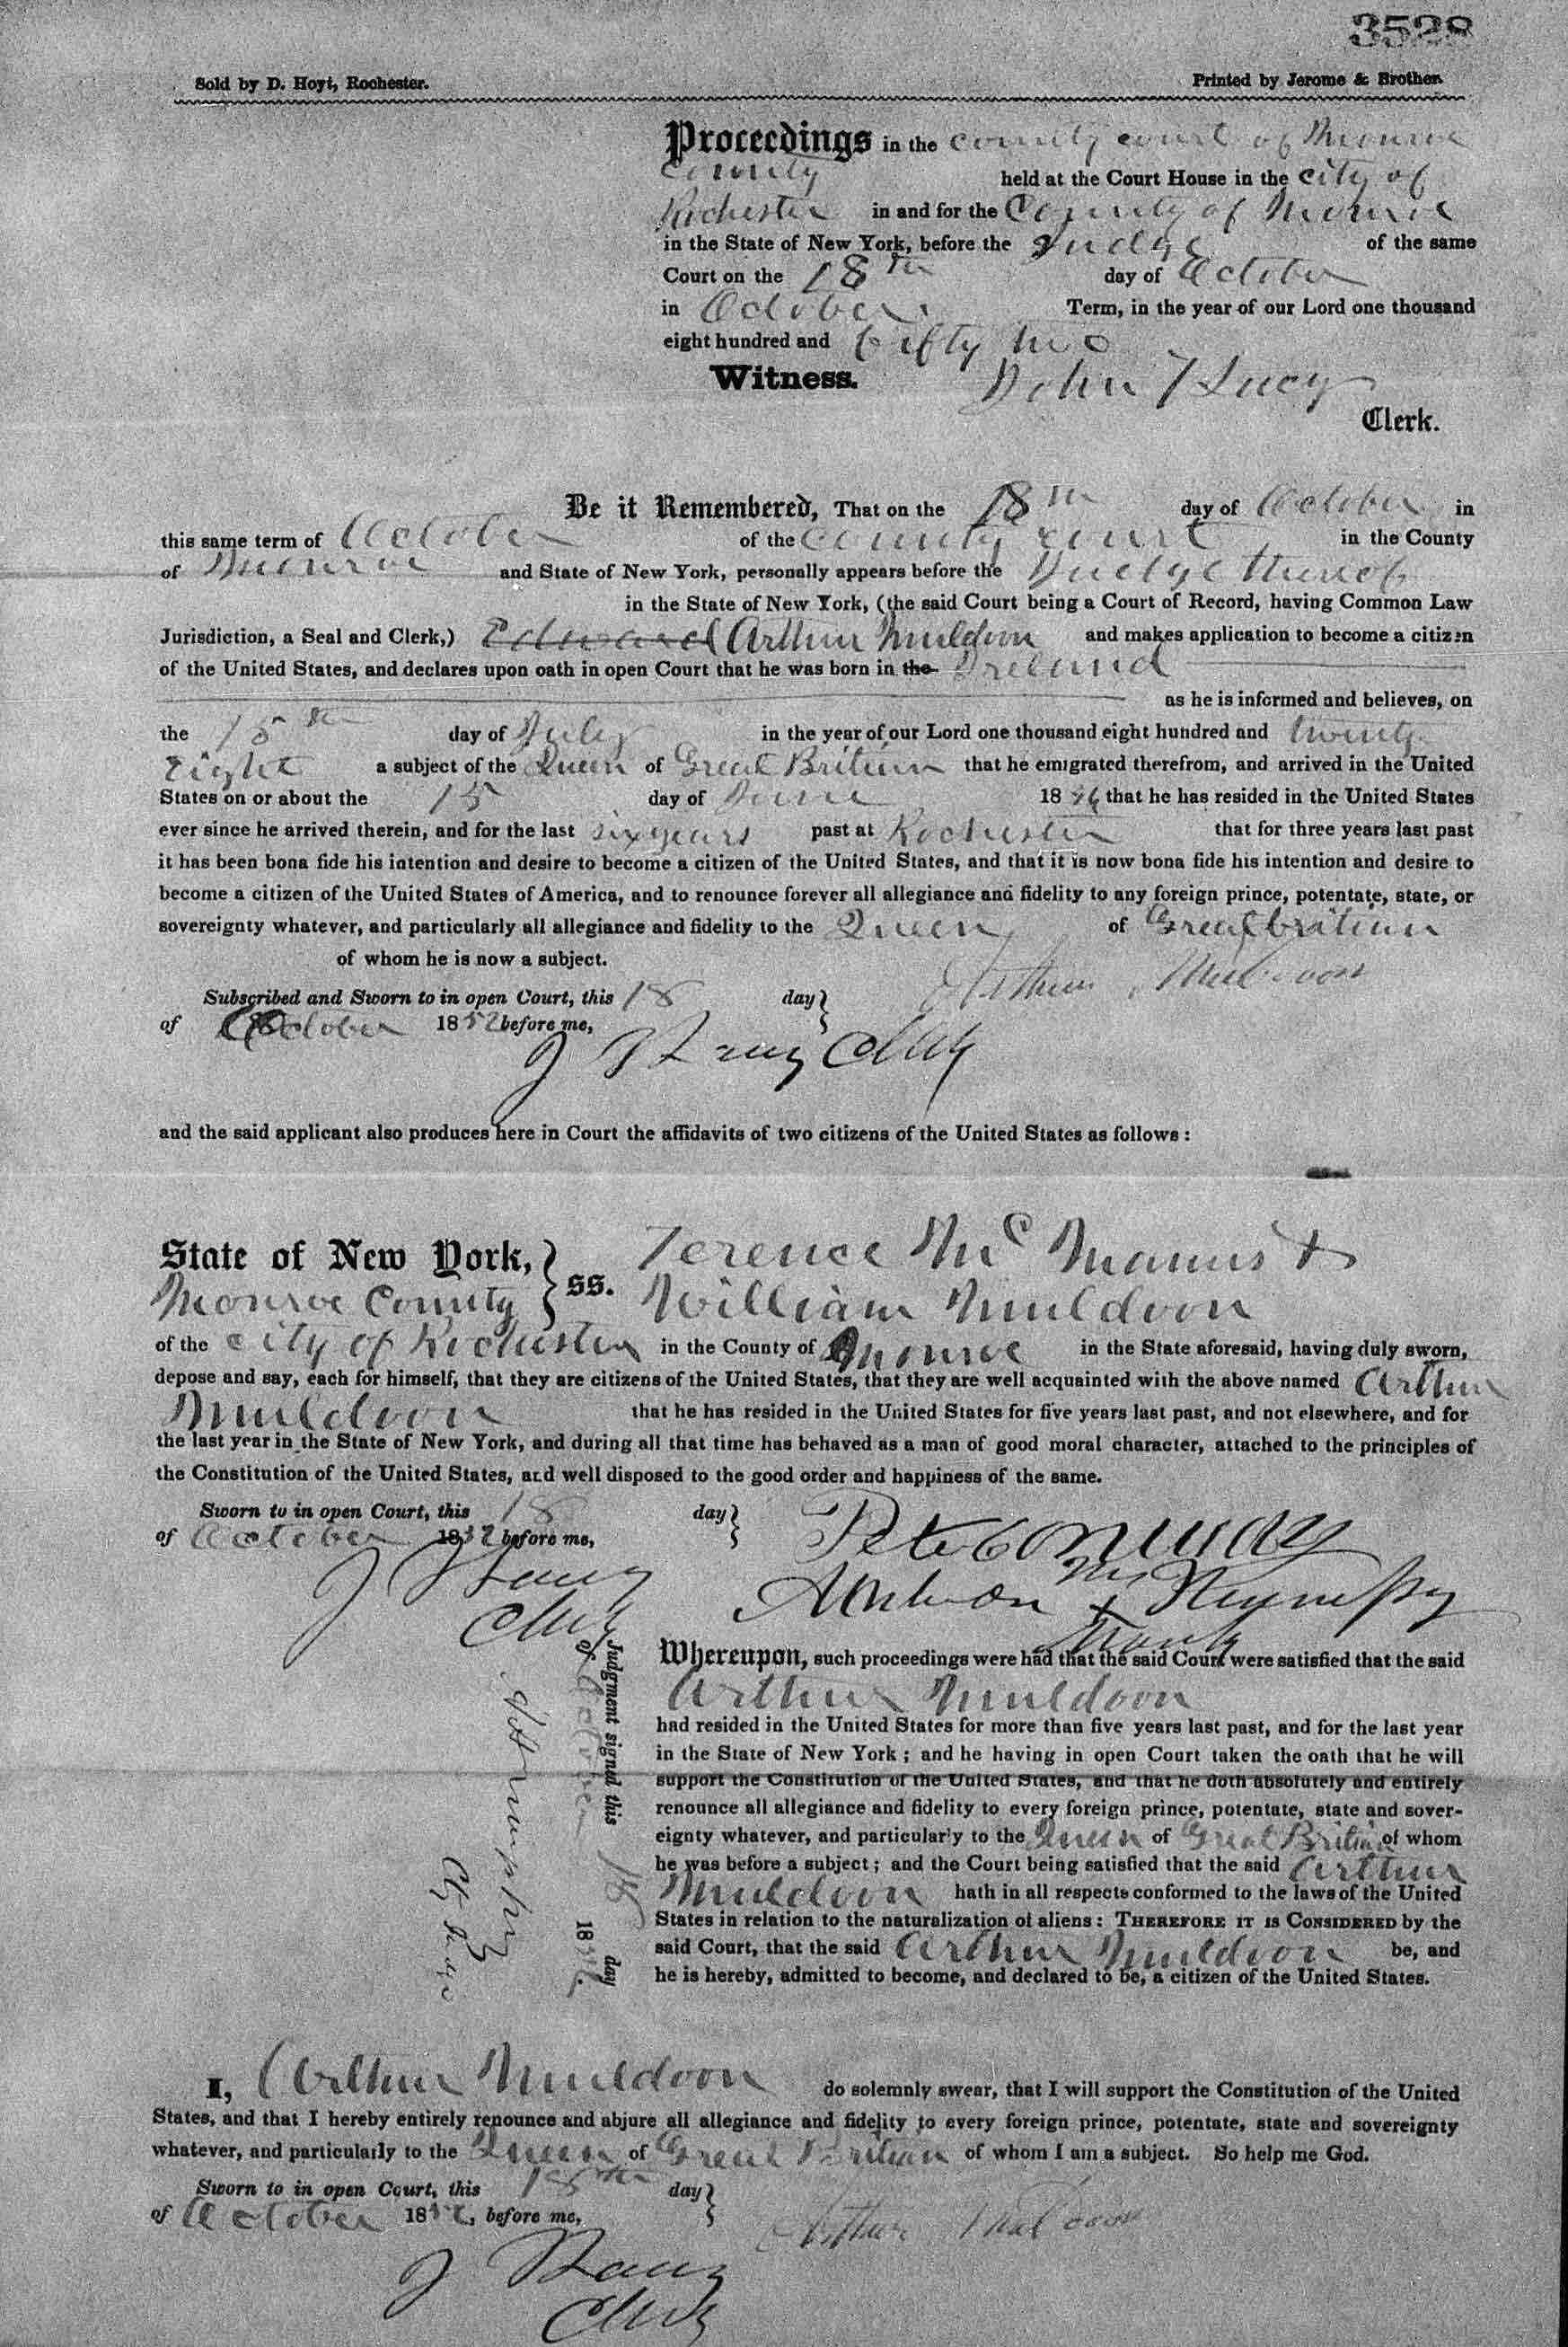 3528
Sold by D. Hoyt, Rochester. Printed by Jerome & Brother.
Proceedings in the county court of Monroe
county held at the Court House in the city of
Rochester in and for the County of Monroe
in the State of New York, before the Judge of the same
Court on the 18th day of October
in October Term, in the year of our Lord one thousand
eight hundred and fifty two
Witness. John T Lacy
Clerk.
Be it Remembered, That on the 18th day of October in
this same term of October of the county court in the County
of Monroe and State of New York, personally appears before the Judge thereof
in the State of New York, (the said Court being a Court of Record, having Common Law
Jurisdiction, a Seal and Clerk,) Edward Arthur Muldoon and makes application to become a citizen
of the United States, and declares upon oath in open Court that he was born in the Ireland
as he is informed and believes, on
the 15th day of July in the year of our Lord one thousand eight hundred and twenty
Eight a subject of the Queen of Great Britian that he emigrated therefrom, and arrived in the United
States on or about the 15 day of June 1846 that he has resided in the United States
ever since he arrived therein, and for the last six years past at Rochester that for three years last past
it has been bona fide his intention and desire to become a citizen of the United States, and that it is now bona fide his intention and desire to
become a citizen of the United States of America, and to renounce forever all allegiance and fidelity to any foreign prince, potentate, state, or
sovereignty whatever, and particularly all allegiance and fidelity to the Queen of Great britian
of whom he is now a subject.
Arthur Muldoon
Subscribed and Sworn to in open Court, this 18 day
of October 1852 before me,
Clerk
and the said applicant also produces here in Court the affidavits of two citizens of the United States as follows:
State of New York, Terence McManus &
Monroe County ss. William Muldoon
of the city of Rochester in the County of Monroe in the State aforesaid, having duly sworn,
depose and say, each for himself, that they are citizens of the United States, that they are well acquainted with the above named Arthur
Muldoon that he has resided in the United States for five years last past, and not elsewhere, and for
the last year in the State of New York, and during all that time has behaved as a man of good moral character, attached to the principles of
the Constitution of the United States, and well disposed to the good order and happiness of the same.
Sworn to in open Court, this 18 day
of October 1852 before me,
Clerk
mark
Judgment signed this 18 day
of October 1852.
Whereupon, such proceedings were had that the said Court were satisfied that the said
Arthur Muldoon
had resided in the United States for more than five years last past, and for the last year
in the State of New York; and he having in open Court taken the oath that he will
support the Constitution of the United States, and that he doth absolutely and entirely
renounce all allegiance and fidelity to every foreign prince, potentate, state and sover-
eignty whatever, and particularly to the Queen of Great Britian of whom
he was before a subject; and the Court being satisfied that the said Arthur
Muldoon hath in all respects conformed to the laws of the United
States in relation to the naturalization of aliens: THEREFORE IT IS CONSIDERED by the
said Court, that the said Arthur Muldoon be, and
he is hereby, admitted to become, and declared to be, a citizen of the United States.
I, Arthur Muldoon do solemnly swear, that I will support the Constitution of the United
States, and that I hereby entirely renounce and abjure all allegiance and fidelity to every foreign prince, potentate, state and sovereignty
whatever, and particularly to the Queen of Great Britian of whom I am a subject. So help me God.
Sworn to in open Court, this 18th day
of October 1852, before me, Arthur Muldoon
Clerk